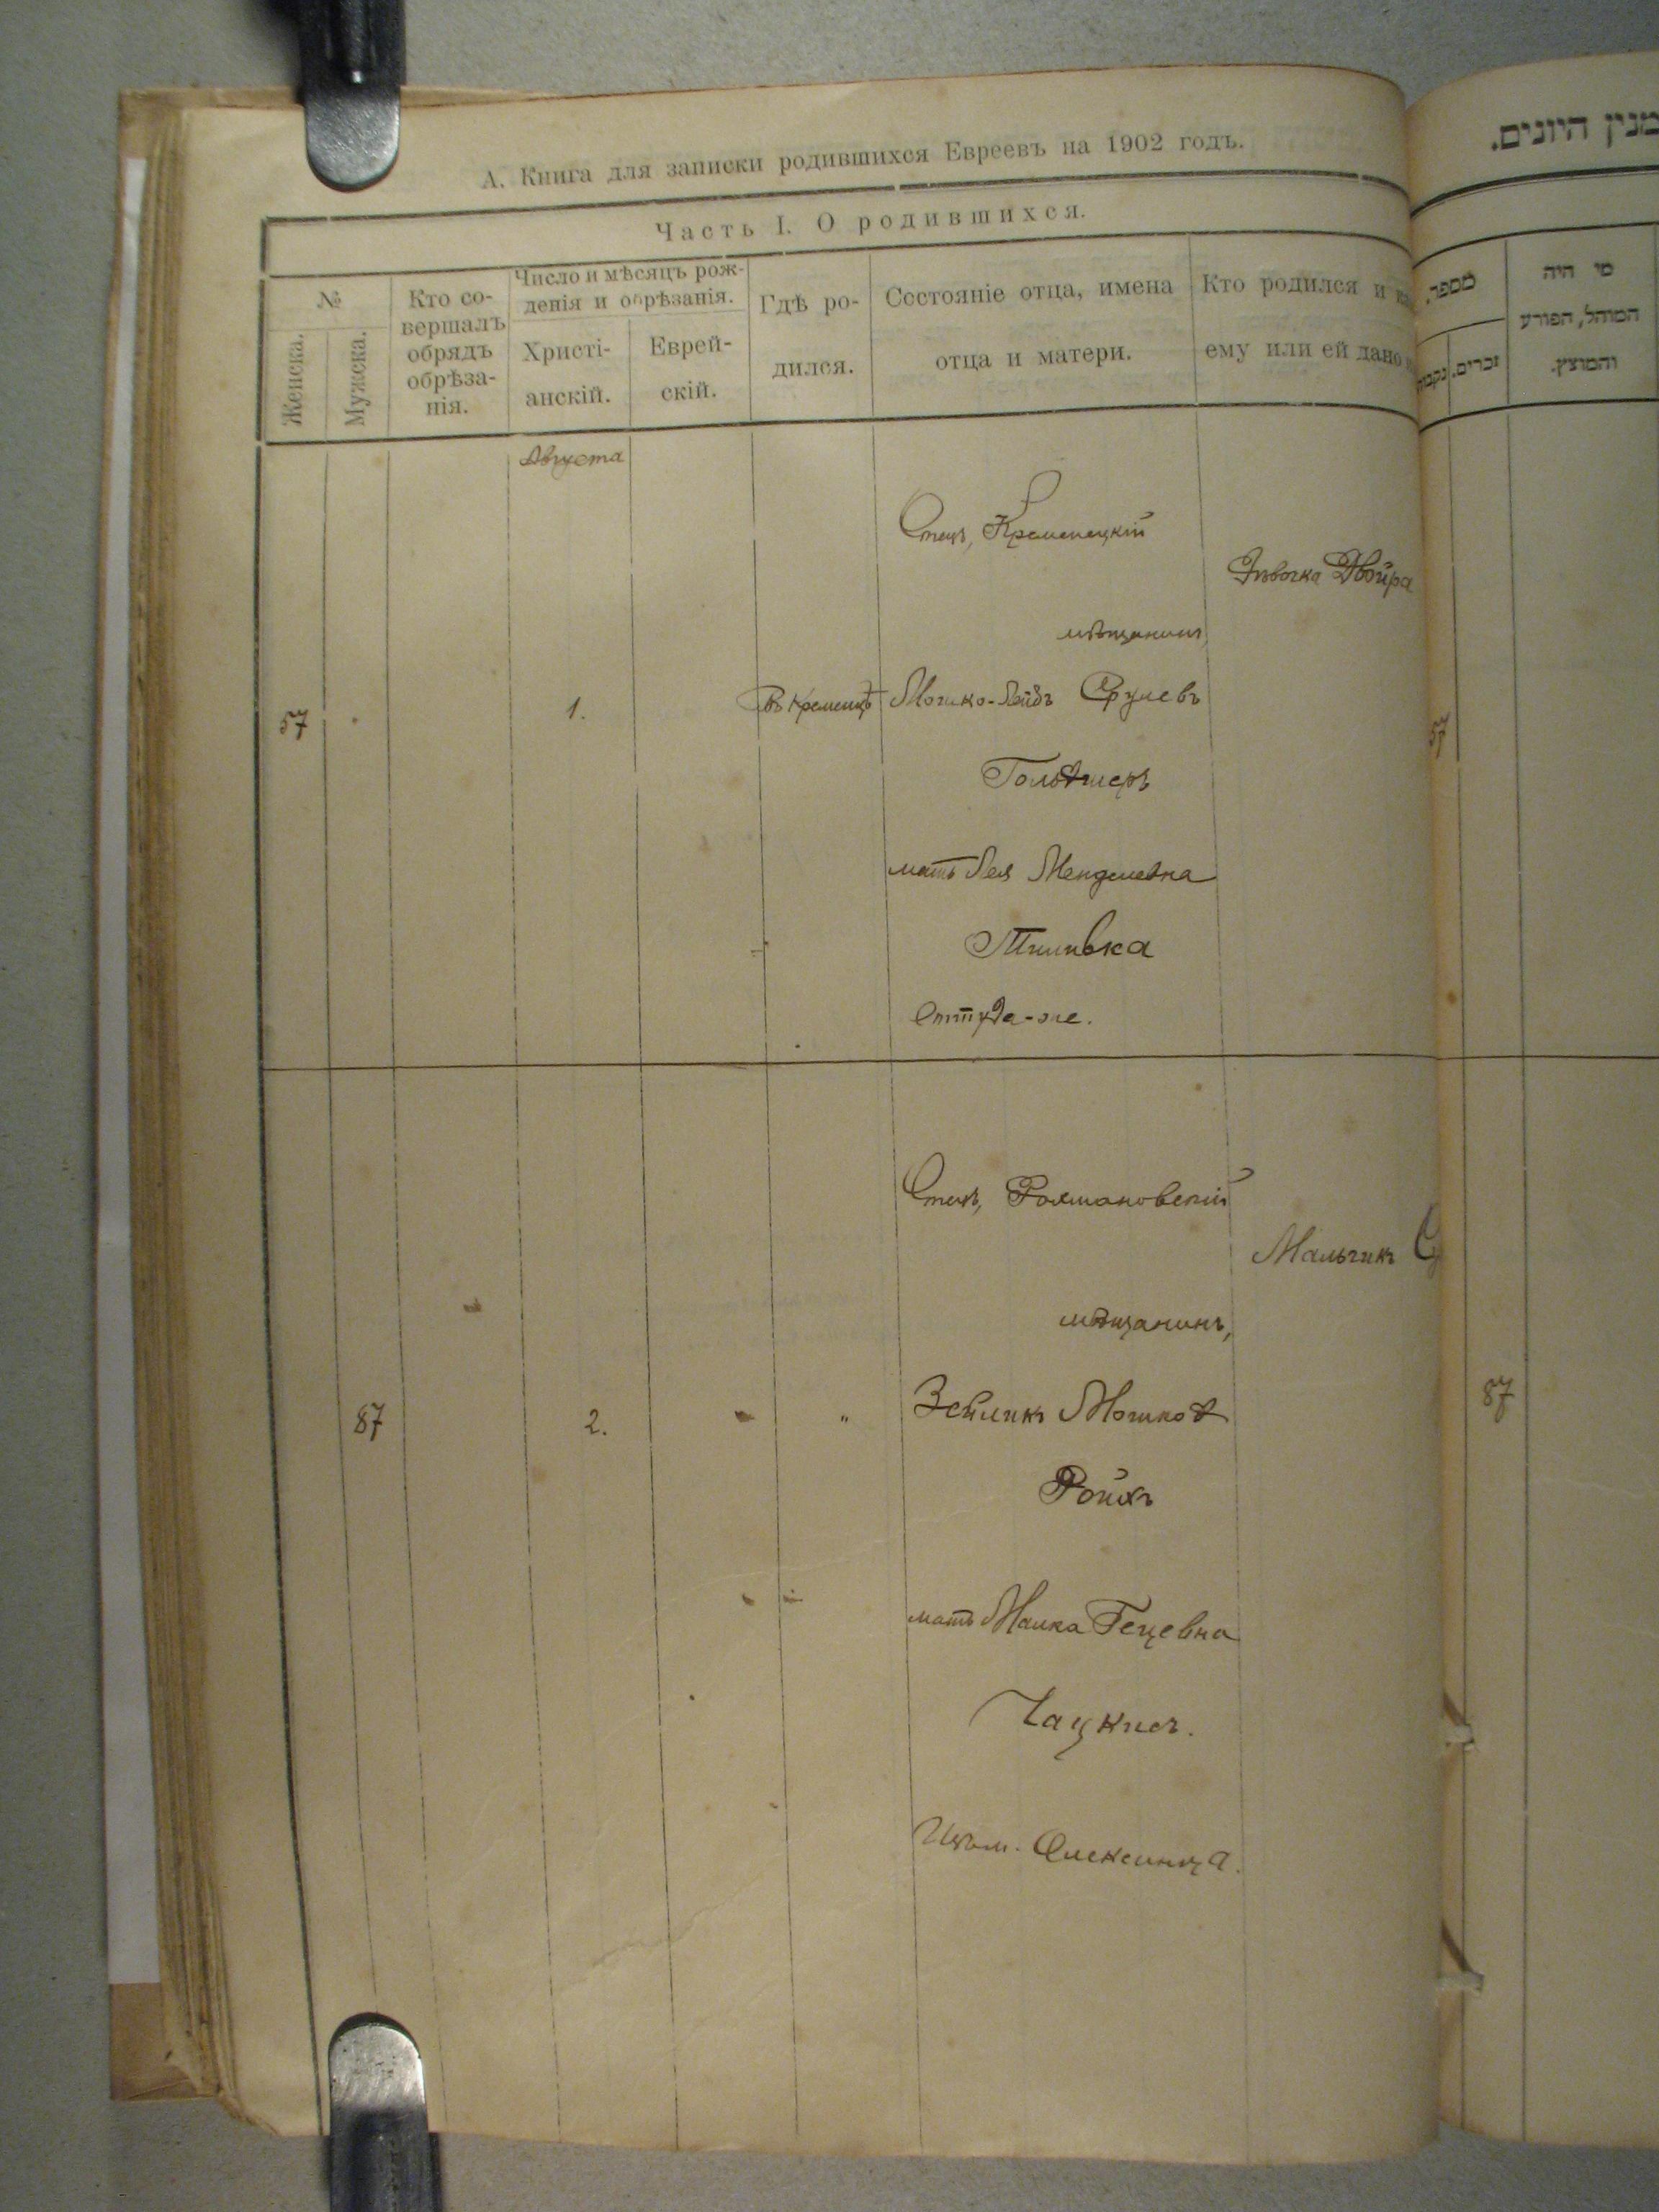 А. Книга для записки родившихся Евреевъ на 1902 годъ.
Часть I. О родившихся.
№
Женска.
Мужска.
Кто со-
вершалъ
обрядъ
обрѣза-
нія.
Число и мѣсяцъ рож-
денія и обрѣзанія.
Христі-
анскій.
Еврей-
скій.
Гдѣ ро-
дился.
Состояніе отца, имена
отца и матери.
Кто родился и
ему или ей дано
Августа
57
1.
Въ Кременцѣ
Отецъ, Кременецкій
мѣщанинъ,
Мошко-Лейбъ Срулевъ
мать Лея Менделевна
Оттуда-же.
Дѣвочка Двойра
87
2.
"
Отецъ, Рахмановскій
мѣщанинъ,
Зейликъ Мошков
Ройхъ
мать Малка Гецевна
Чацкисъ.
Олексинца.
Мальчикъ
מנין היונים.
מספר.
נקבות
זכרים.
מי היה
המוהל, הפורע
והמוצץ.
57
87